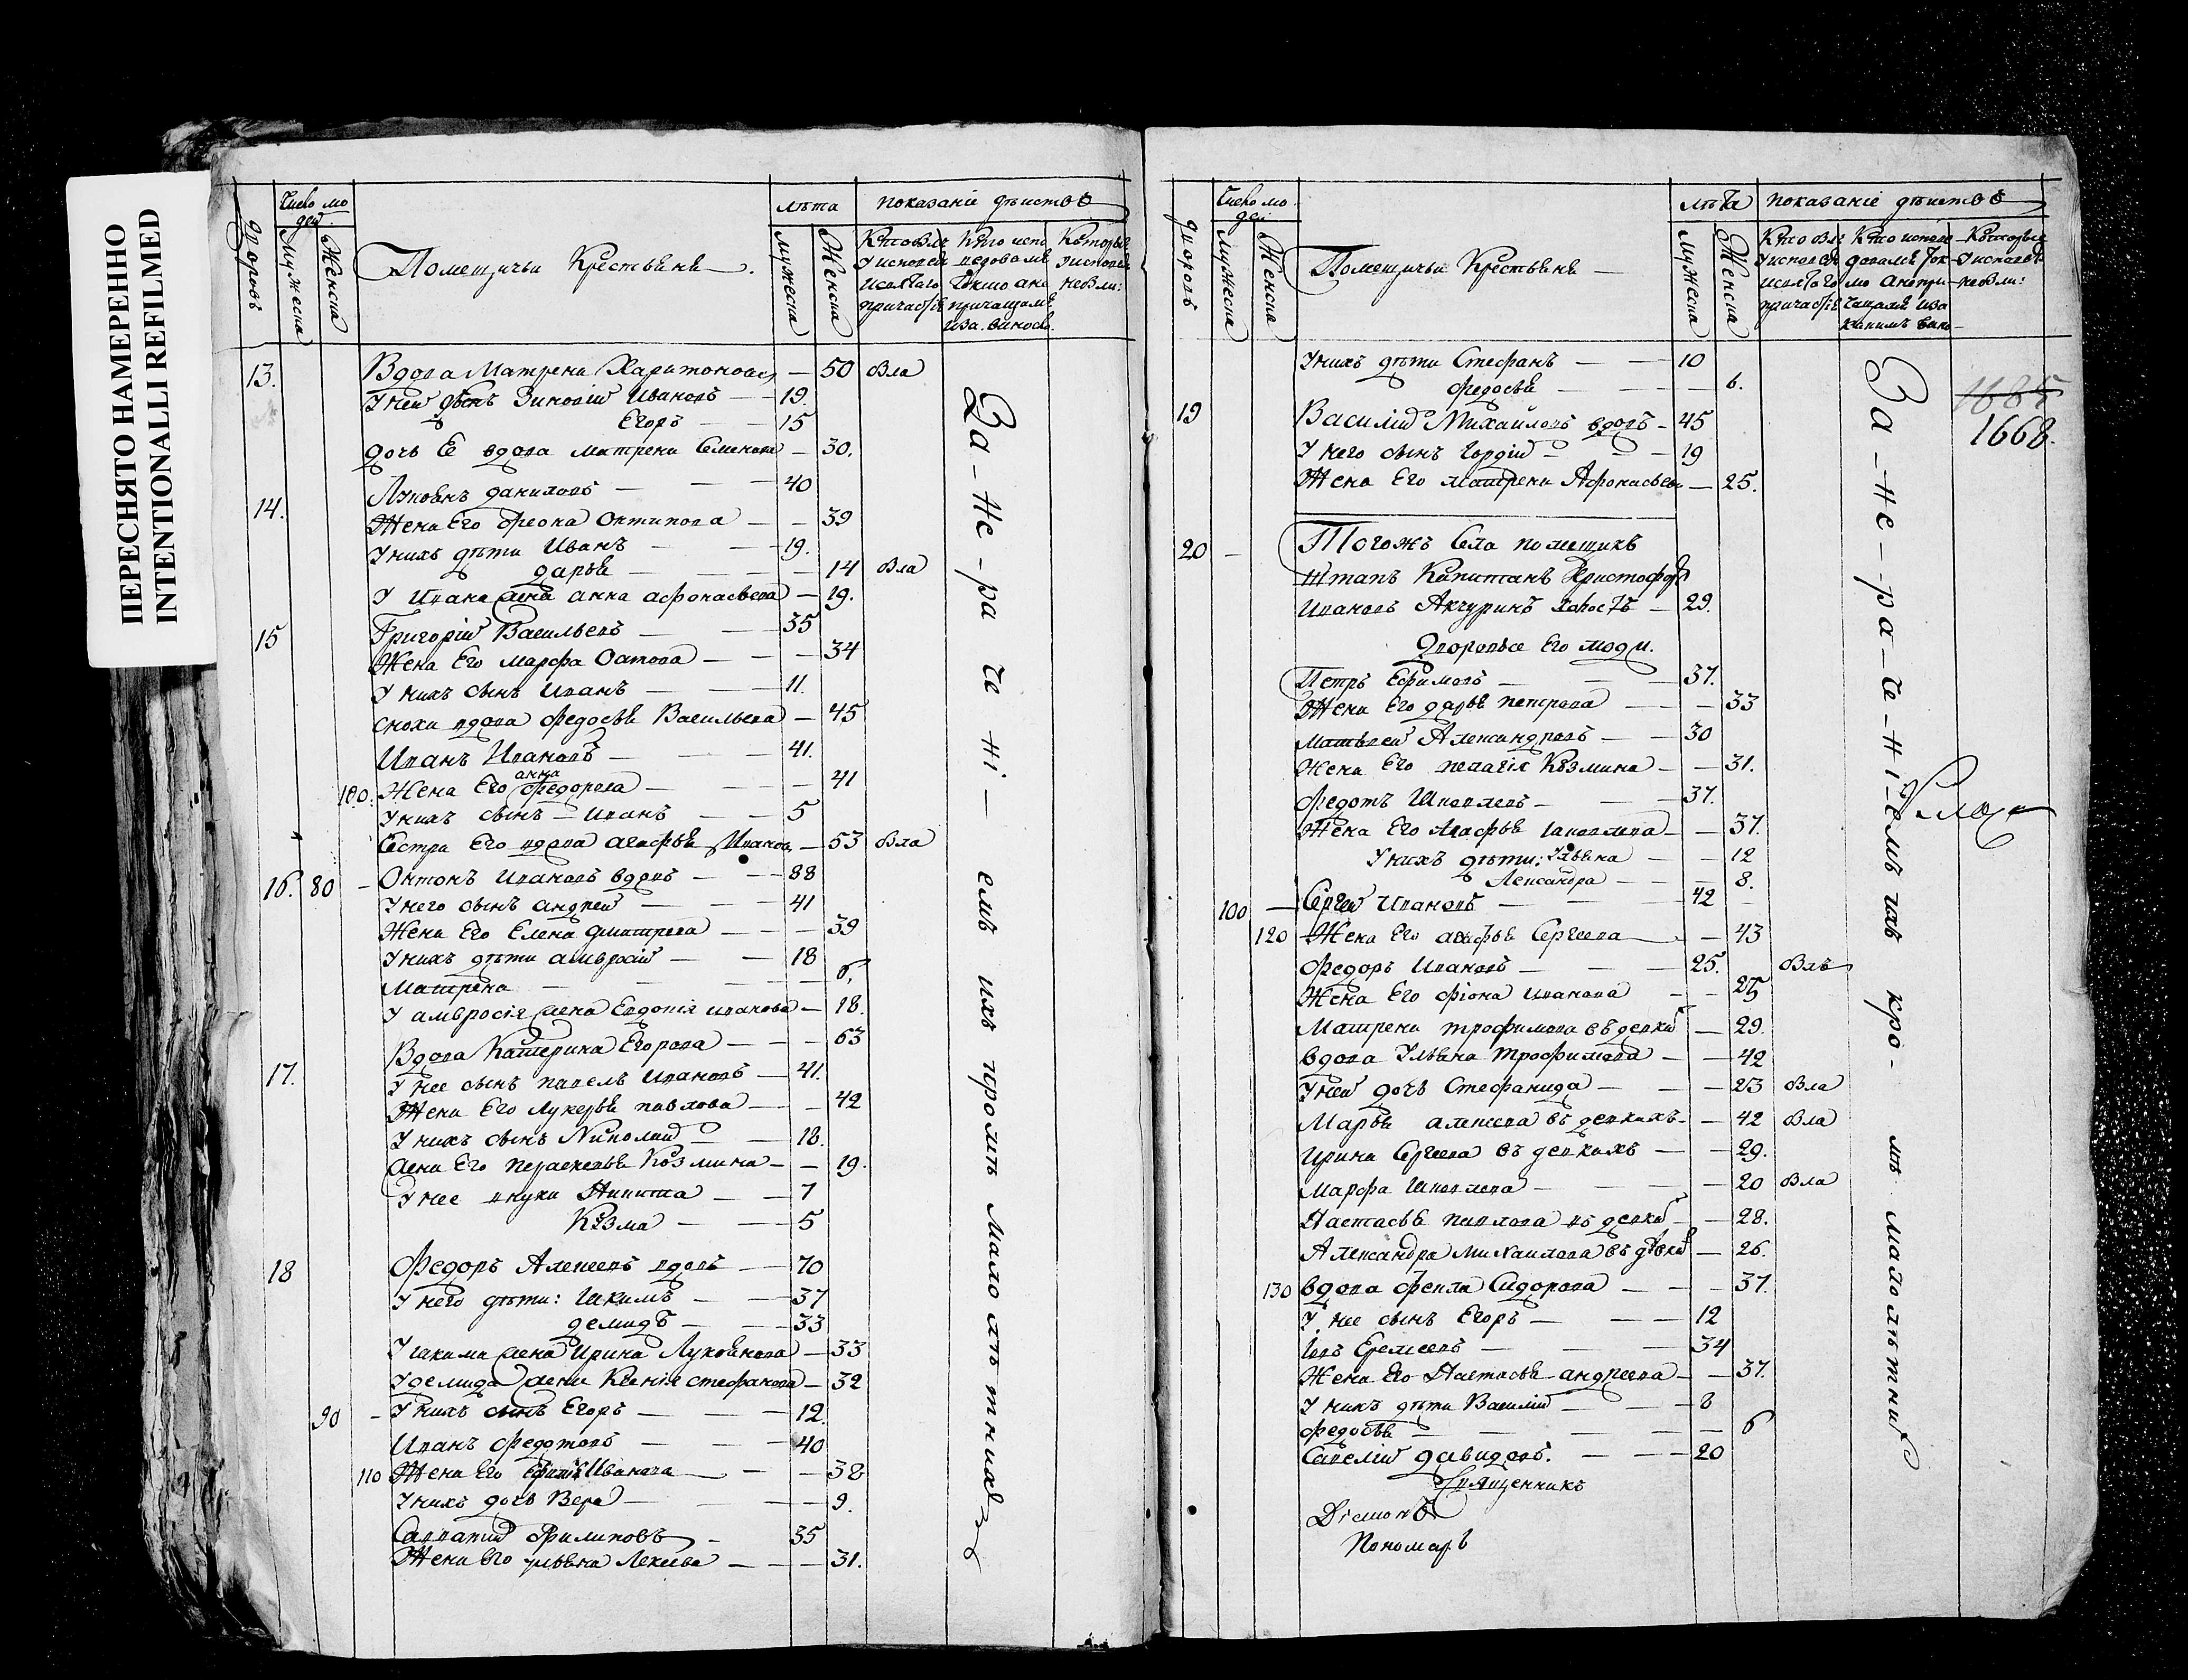 ПЕРЕСНЯТО НАМЕРЕННО
INTENTIONALLI REFILMED
Число лю
дей
дворовъ
Мужеска
Женска
Помещичьи Крестьяне
лѣта
Мужеска
Женска
показаніе дѣиствъ
13. Вдова Матрена Харитонова — 50 Бла
У ней сынъ Зиновіи Ивановъ — 19.
Егоръ — 15
дочь Е вдова матрена Семенова — 30.
14. Лукоянъ даниловъ — 40
Жена Его феона Онтипова — 39
У нихъ дѣти Иванъ — 19.
дарья — 14 Бла
У Ивана жена анна афонасьева — 19.
15 Григоріи Васильевъ — 35
Жена Его марфа — 34
У нихъ сынъ Иванъ — 11.
сноха вдова федосья Васильева — 45
Иванъ Ивановъ — 41.
анна
100. Жена Его федорова — 41
У нихъ сынъ Иванъ — 5
Сестра Его вдова агафья Иванова — 53 Бла
16. 80 — Онтонъ Ивановъ вдовъ — 88
У него сынъ андреи — 41
Жена Его Елена дмитрева — 39
У нихъ дѣти амвросіи — 18
Матрена — 6.
У амвросія жена Евдокія иванова — 18.
17. Вдова Катерина Егорова — 63
У нее сынъ павелъ Ивановъ — 41.
Жена Его лукерья павлова — 42
У нихъ сынъ Николаи — 18.
жена Его пераскевья Козмина — 19.
У нее внуки Никита — 7
Козма — 5
18 Федоръ Алексеевъ вдовъ — 70
У него дѣти: Иякимъ — 37
демидъ — 33
У иакима жена Ирина Лукоянова — 33
У демида жена Ксенія стефанова — 32
90 — У нихъ сынъ Егоръ — 12.
Иванъ федотовъ — 40
110 Жена Его Иванова — 38
У нихъ дочь Вера — 9.
Савватии Филиповъ — 35
Жена Его ульяна Лексеева — 31.
За-не-ра че ні-емъ ихъ кромѣ малолѣтнихъ
Число лю
дей
дворовъ
Мужеска
Женска
Помещичьи Крестьяне
лѣта
Мужеска
Женска
показаніе дѣиствъ
У нихъ дѣти Стефанъ — 10
федосья — 6.
19 Василіи Михайловъ вдовъ — 45
У него сынъ Гордіи — 19
Жена Его матрена Афонасьева — 25.
20 — Тогожъ села помещикъ
Штапъ Капитанъ Христофоръ
Ивановъ Акчуринъ холостъ — 29.
Дворовые Его люди.
Петръ Ефимовъ — 37.
Жена Его дарья петрова — 33
матвеи Александровъ — 30
Жена Его пелагія Козмина — 31.
федотъ Ияковлевъ — 37.
Жена Его Агафья иаковлева — 37.
У нихъ дѣти: Ульяна — 12
Лександра — 8.
100 — Сергеи Ивановъ — 42
120 Жена Его агафья Сергеева — 43
федоръ Ивановъ — 25. Блъ
Жена Его фіона Иванова — 25
Матрена трофимова въ девках — 29.
вдова Ульяна трофимова — 42
У неи дочь Стефанида — 23 Бла
Марья алексева въ девкахъ — 42 Бла
Ирина Сергеева въ девкахъ — 29.
Марфа Ияковлева — 20 Бла
Настасья павлова въ девках — 28.
Александра Михаилова въ дѣвках — 26.
130 вдова фекла Сидорова — 37.
У нее сынъ Егоръ — 12
Иевъ Еремеевъ — 34
Жена Его Настасья андреева — 37.
У нихъ дѣти Василіи — 8
федосья — 6
Савеліи давидовъ. — 20
Священникъ
Діаконъ
Пономарь
За-не-ра-че-ні-емъ кро-мѣ малолѣтних
1668.